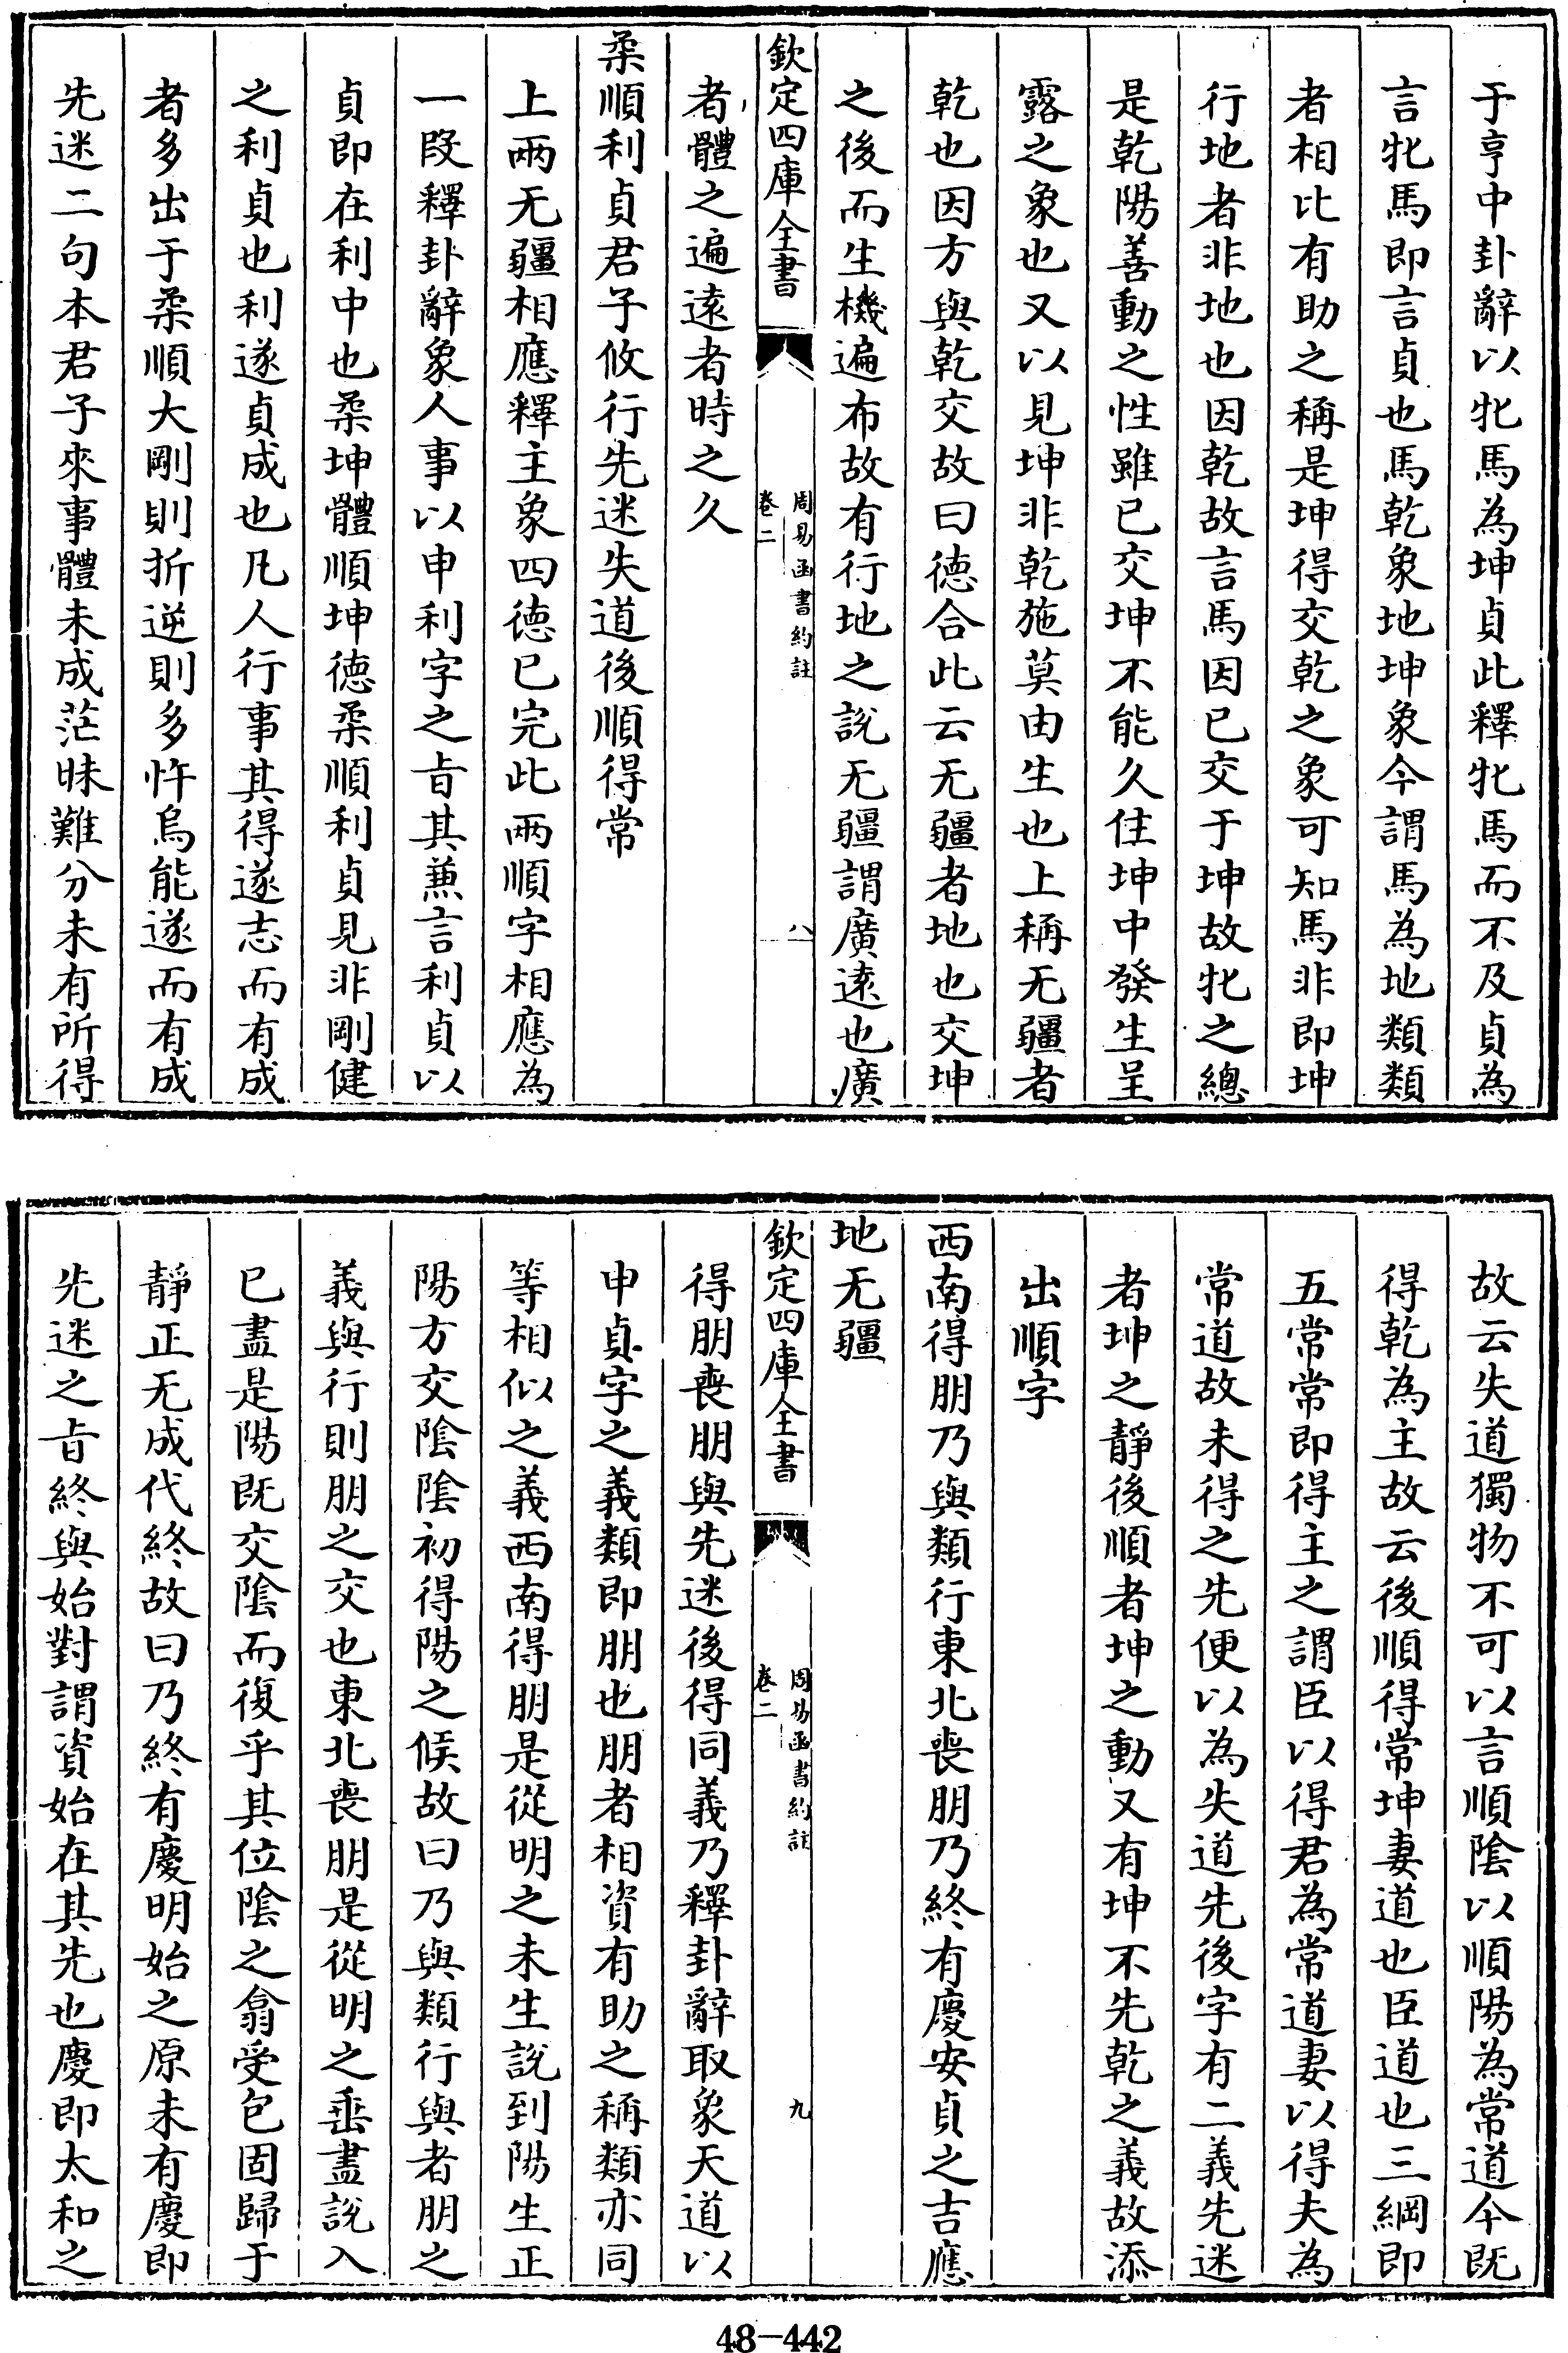 于亨中卦辭以牝馬為坤貞此釋牝馬而不及貞為
言牝馬即言貞也馬乾象地坤象今謂馬為地類類
者相比有助之稱是坤得交乾之象可知馬非即坤
行地者非地也因乾故言馬因已交于坤故牝之總
是乾陽善動之性雖已交坤不能久住坤中發生呈
露之象也又以見坤非乾施莫由生也上稱无疆者
乾也因方與乾交故曰德合此云无疆者地也交坤
之後而生機遍布故有行地之說无疆謂廣逺也廣
欽定四庫全書
周易函書約註
卷二
八
者體之遍逺者時之久
柔順利貞君子攸行先迷失道後順得常
上兩无疆相應釋主象四德已完此兩順字相應為
一段釋卦辭象人事以申利字之旨其兼言利貞以
貞即在利中也柔坤體順坤德柔順利貞見非剛健
之利貞也利遂貞成也凡人行事其得遂志而有成
者多出于柔順大剛則折逆則多忤烏能遂而有成
先迷二句本君子來事體未成茫昧難分未有所得
故云失道獨物不可以言順陰以順陽為常道今既
得乾為主故云後順得常坤妻道也臣道也三綱即
五常常即得主之謂臣以得君為常道妻以得夫為
常道故未得之先便以為失道先後字有二義先迷
者坤之靜後順者坤之動又有坤不先乾之義故添
出順字
西南得朋乃與類行東北喪朋乃終有慶安貞之吉應
地无疆
欽定四庫全書
周易函書約註
卷二
九
得朋喪朋與先迷後得同義乃釋卦辭取象天道以
申貞字之義類即朋也朋者相資有助之稱類亦同
等相似之義西南得朋是從明之未生說到陽生正
陽方交陰陰初得陽之候故曰乃與類行與者朋之
義與行則朋之交也東北喪朋是從明之垂盡說入
已盡是陽既交陰而復乎其位陰之翕受包固歸于
靜正无成代終故曰乃終有慶明始之原未有慶即
先迷之旨終與始對謂資始在其先也慶即太和之
48-442